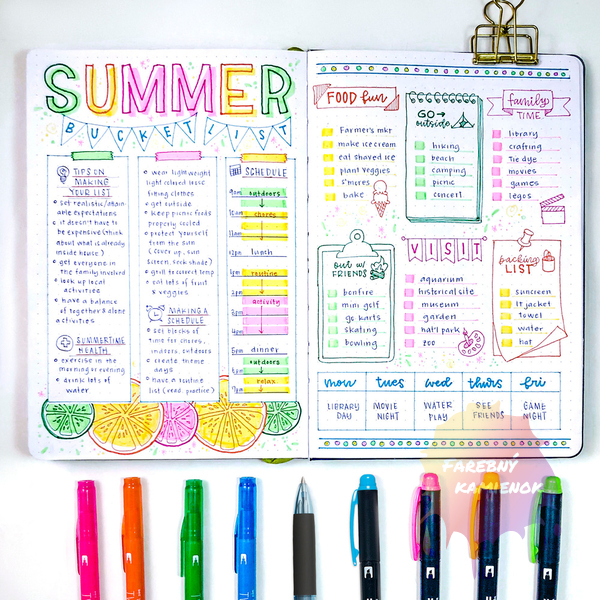 SUMMER
BUCKET LIST
TIPS ON
MAKING
YOUR LIST
set realistic/attain-
able expectations
it doesn't have to
be expensive (think
about what is already
inside house)
get everyone in
the family involved
look up local
activities
have a balance
of together & alone
activities
SUMMERTIME
HEALTH
exercise in the
morning or evening
drink lots of
water
wear lightweight
light colored loose
fitting clothes
get outside
keep picnic foods
properly cooled
protect yourself
from the sun
(cover up, sun
screen, seek shade)
grill to correct temp
eat lots of fruit
& veggies
MAKING A
SCHEDULE
set blocks of
time for chores,
indoors, outdoors
create theme
days
have a routine
list (read, practice)
SCHEDULE
9am outdoors
10am chores
11am
12pm lunch
1pm routine
2pm activity
3pm
4pm
5pm dinner
outdoors
relax
FOOD fun
Farmer's mkt
make ice cream
eat shaved ice
plant veggies
s'mores
bake
GO→
outside
hiking
beach
camping
picnic
concert
family
TIME
library
crafting
tie dye
movies
games
legos
out w/
FRIENDS
bonfire
mini golf
go karts
skating
bowling
VISIT
aquarium
historical site
museum
garden
nat'l park
zoo
packing
LIST
sunscreen
lt jacket
towel
water
hat
mon tues wed thurs fri
LIBRARY DAY MOVIE NIGHT WATER PLAY SEE FRIENDS GAME NIGHT
FAREBNÝ
KAMIENOK